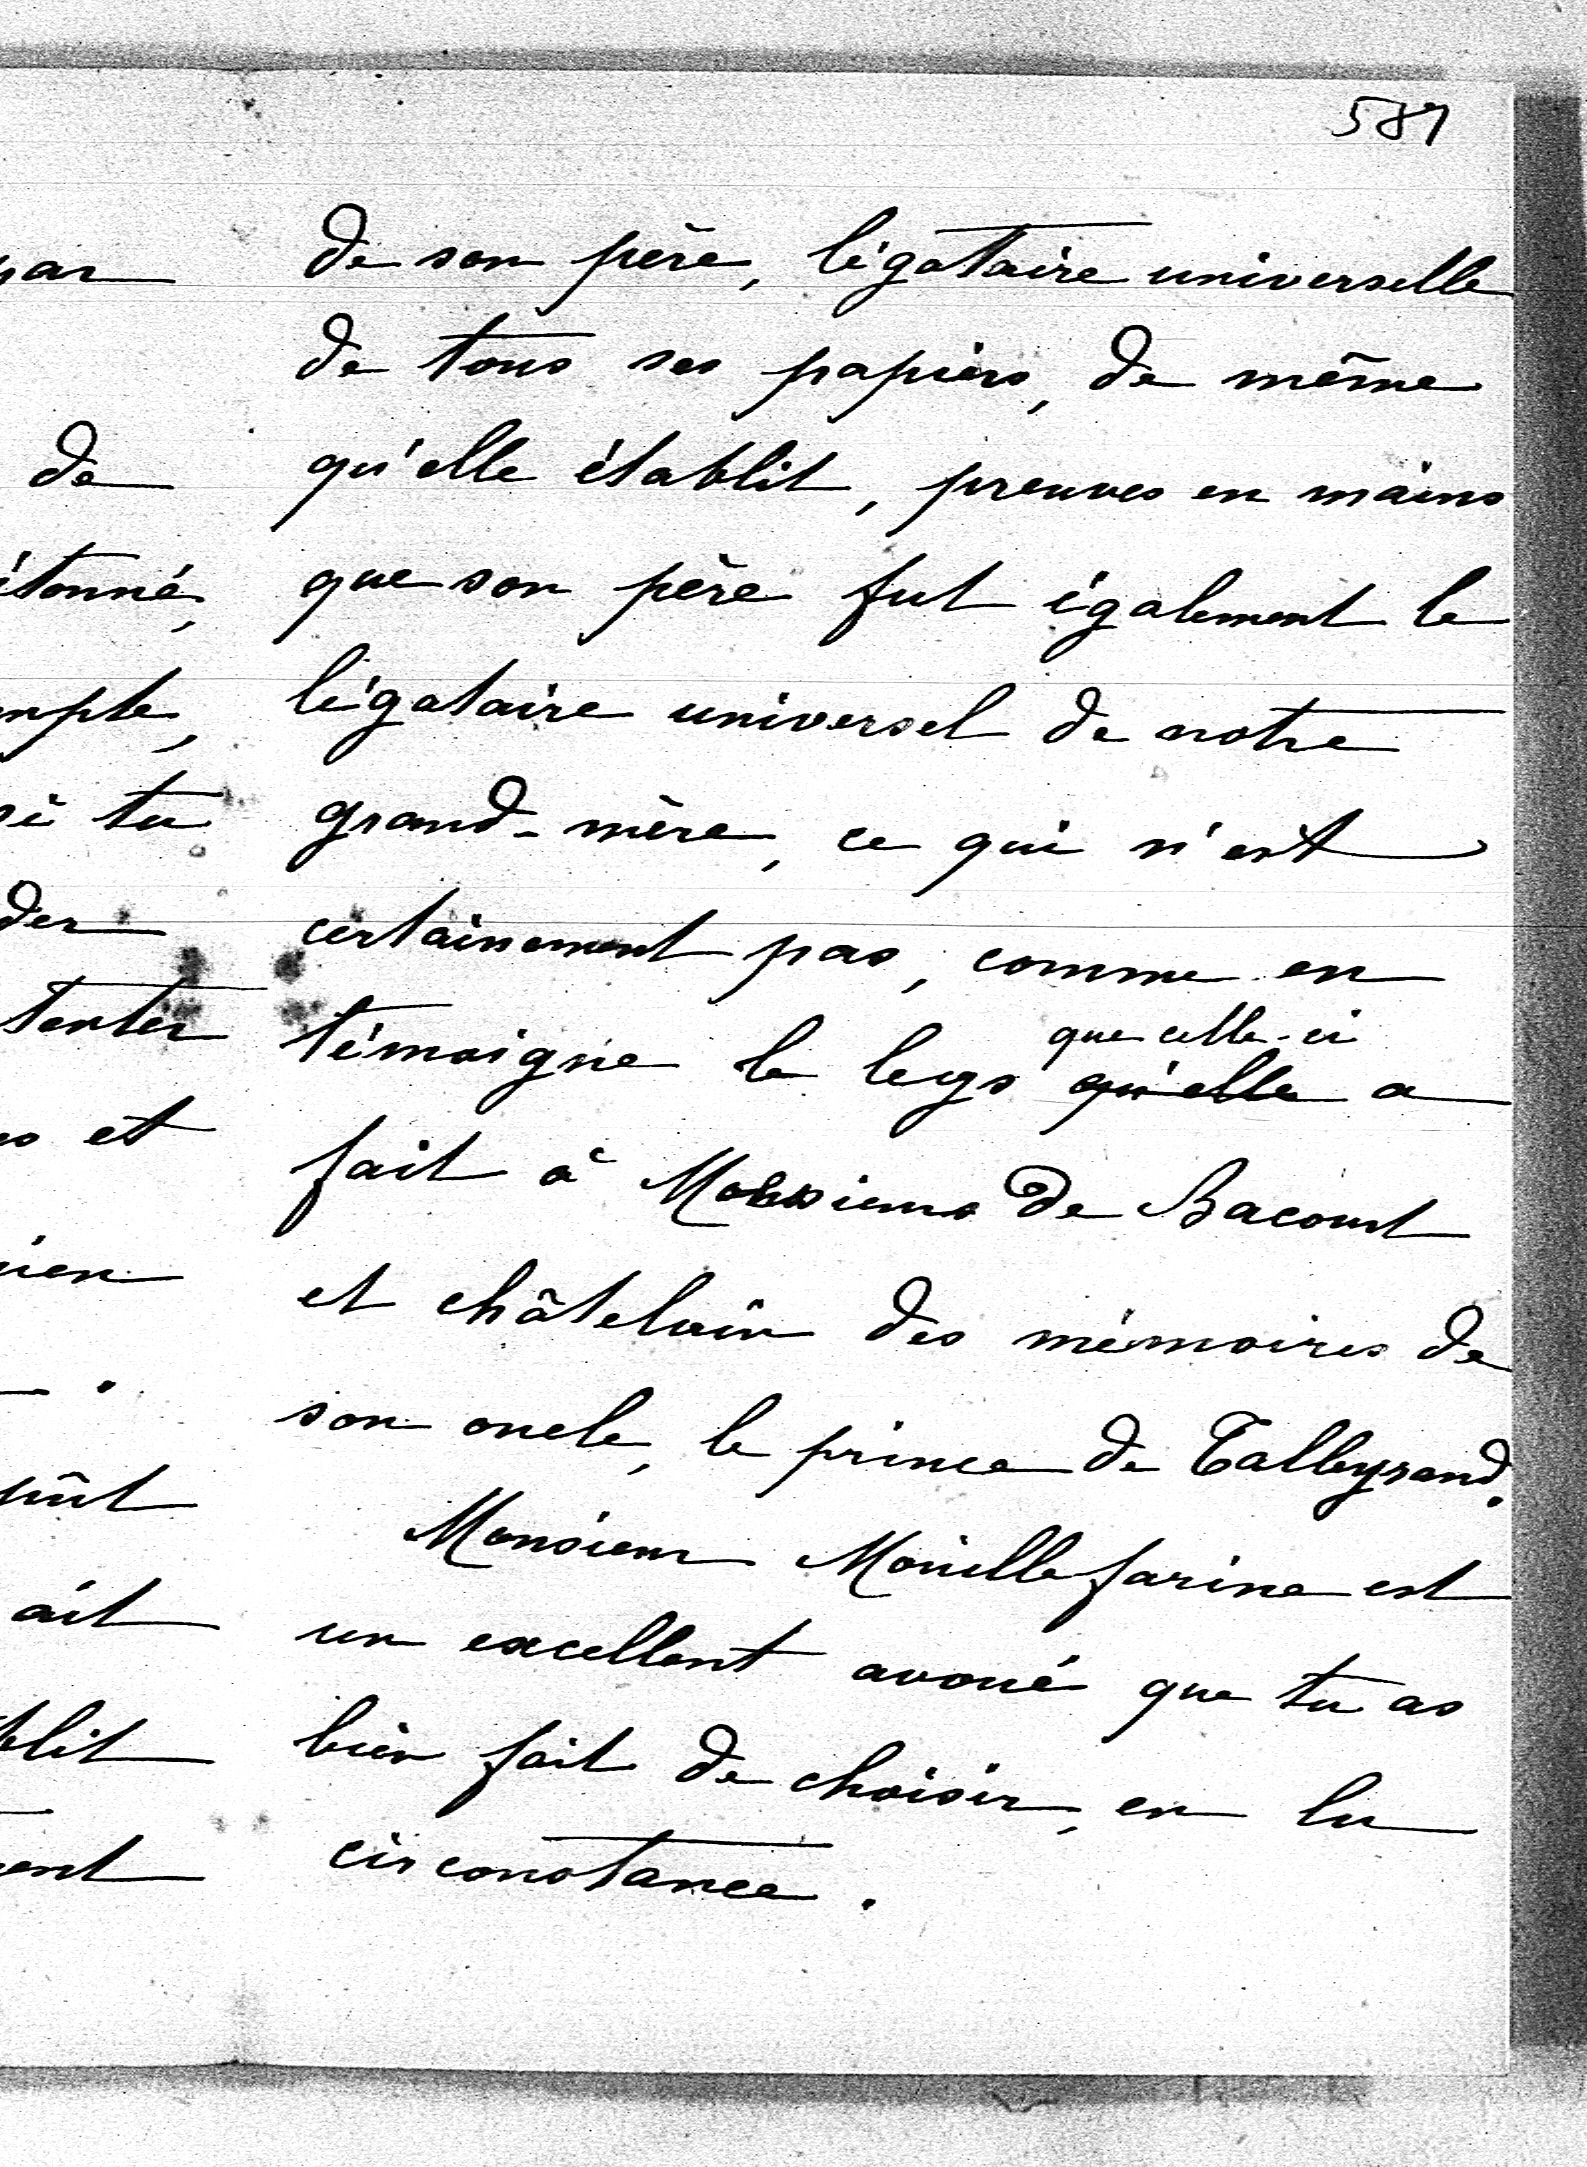 587
de son père, légataire universelle
de tous ses papiers, de même
qu'elle établit, preuves en mains
que son père fut également le
légataire universel de notre
grand-mère, ce qui n'est
certainement pas, comme en
que celle-ci
témoigne le legs qu'elle a
fait à Messieurs de Bacourt
et châtelain des mémoires de
son oncle, le prince de Talleyrand.
Monsieur Mouillefarine est
un excellent avoué que tu as
bien fait de choisir, en la
circonstance.
par
de
étonné,
si tu
tenter
et
ait